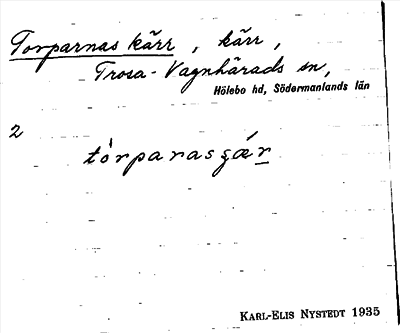 Torparnas kärr, kärr,
Trosa-Vagnhärads sn,
Hölebo hd, Södermanlands län
2
tòrparasꞔǽr
KARL-ELIS NYSTEDT 1935